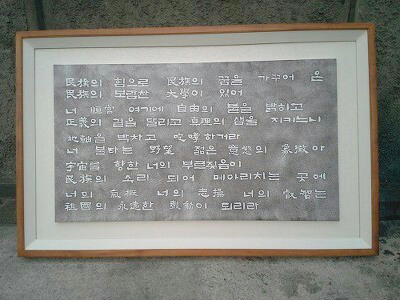 民族의 힘으로 民族의 꿈을 가꾸어 온
民族의 보람찬 大學이 있어
너 恒常 여기에 自由의 불을 밝히고
正義의 길을 달리고 眞理의 샘을 지키느니
地軸을 박차고 咆哮하거라
너 불타는 野望 젊은 意慾의 象徵아
宇宙를 향한 너의 부르짖음이
民族의 소리 되어 메아리치는 곳에
너의 氣槪 너의 志操 너의 叡智는
祖國의 永遠한 鼓動이 되리라